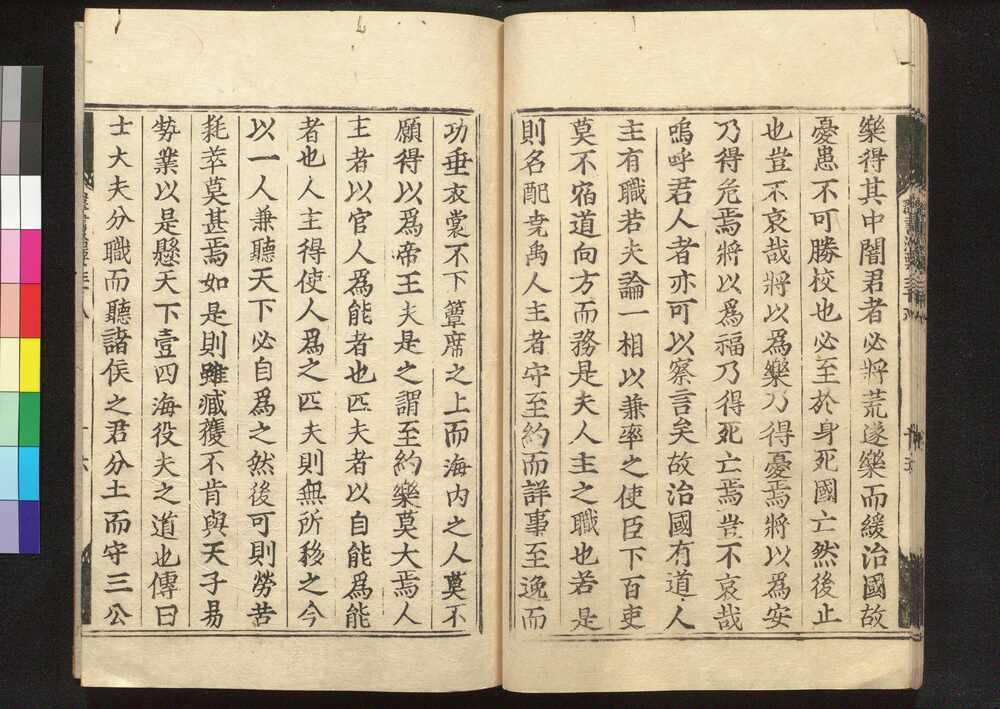 樂得其中闇君者必將荒遂樂而緩治國故
憂患不可勝校也必至於身死國亡然後止
也豈不哀哉將以爲樂乃得憂焉將以爲安
乃得危焉將以爲福乃得死亡焉豈不哀哉
嗚呼君人者亦可以察言矣故治國有道人
主有職若夫論一相以兼率之使臣下百吏
莫不宿道向方而務是夫人主之職也若是
則名配堯禹人主者守至約而詳事至逸而
功垂衣裳不下簟席之上而海内之人莫不
願得以爲帝王夫是之謂至約樂莫大焉人
主者以官人爲能者也匹夫者以自能爲能
者也人主得使人爲之匹夫則無所移之今
以一人兼聽天下必自爲之然後可則勞苦
耗萃莫甚焉如是則雖臧獲不肯與天子易
勢業以是懸天下壹四海役夫之道也傳曰
士大夫分職而聽諸侯之君分土而守三公